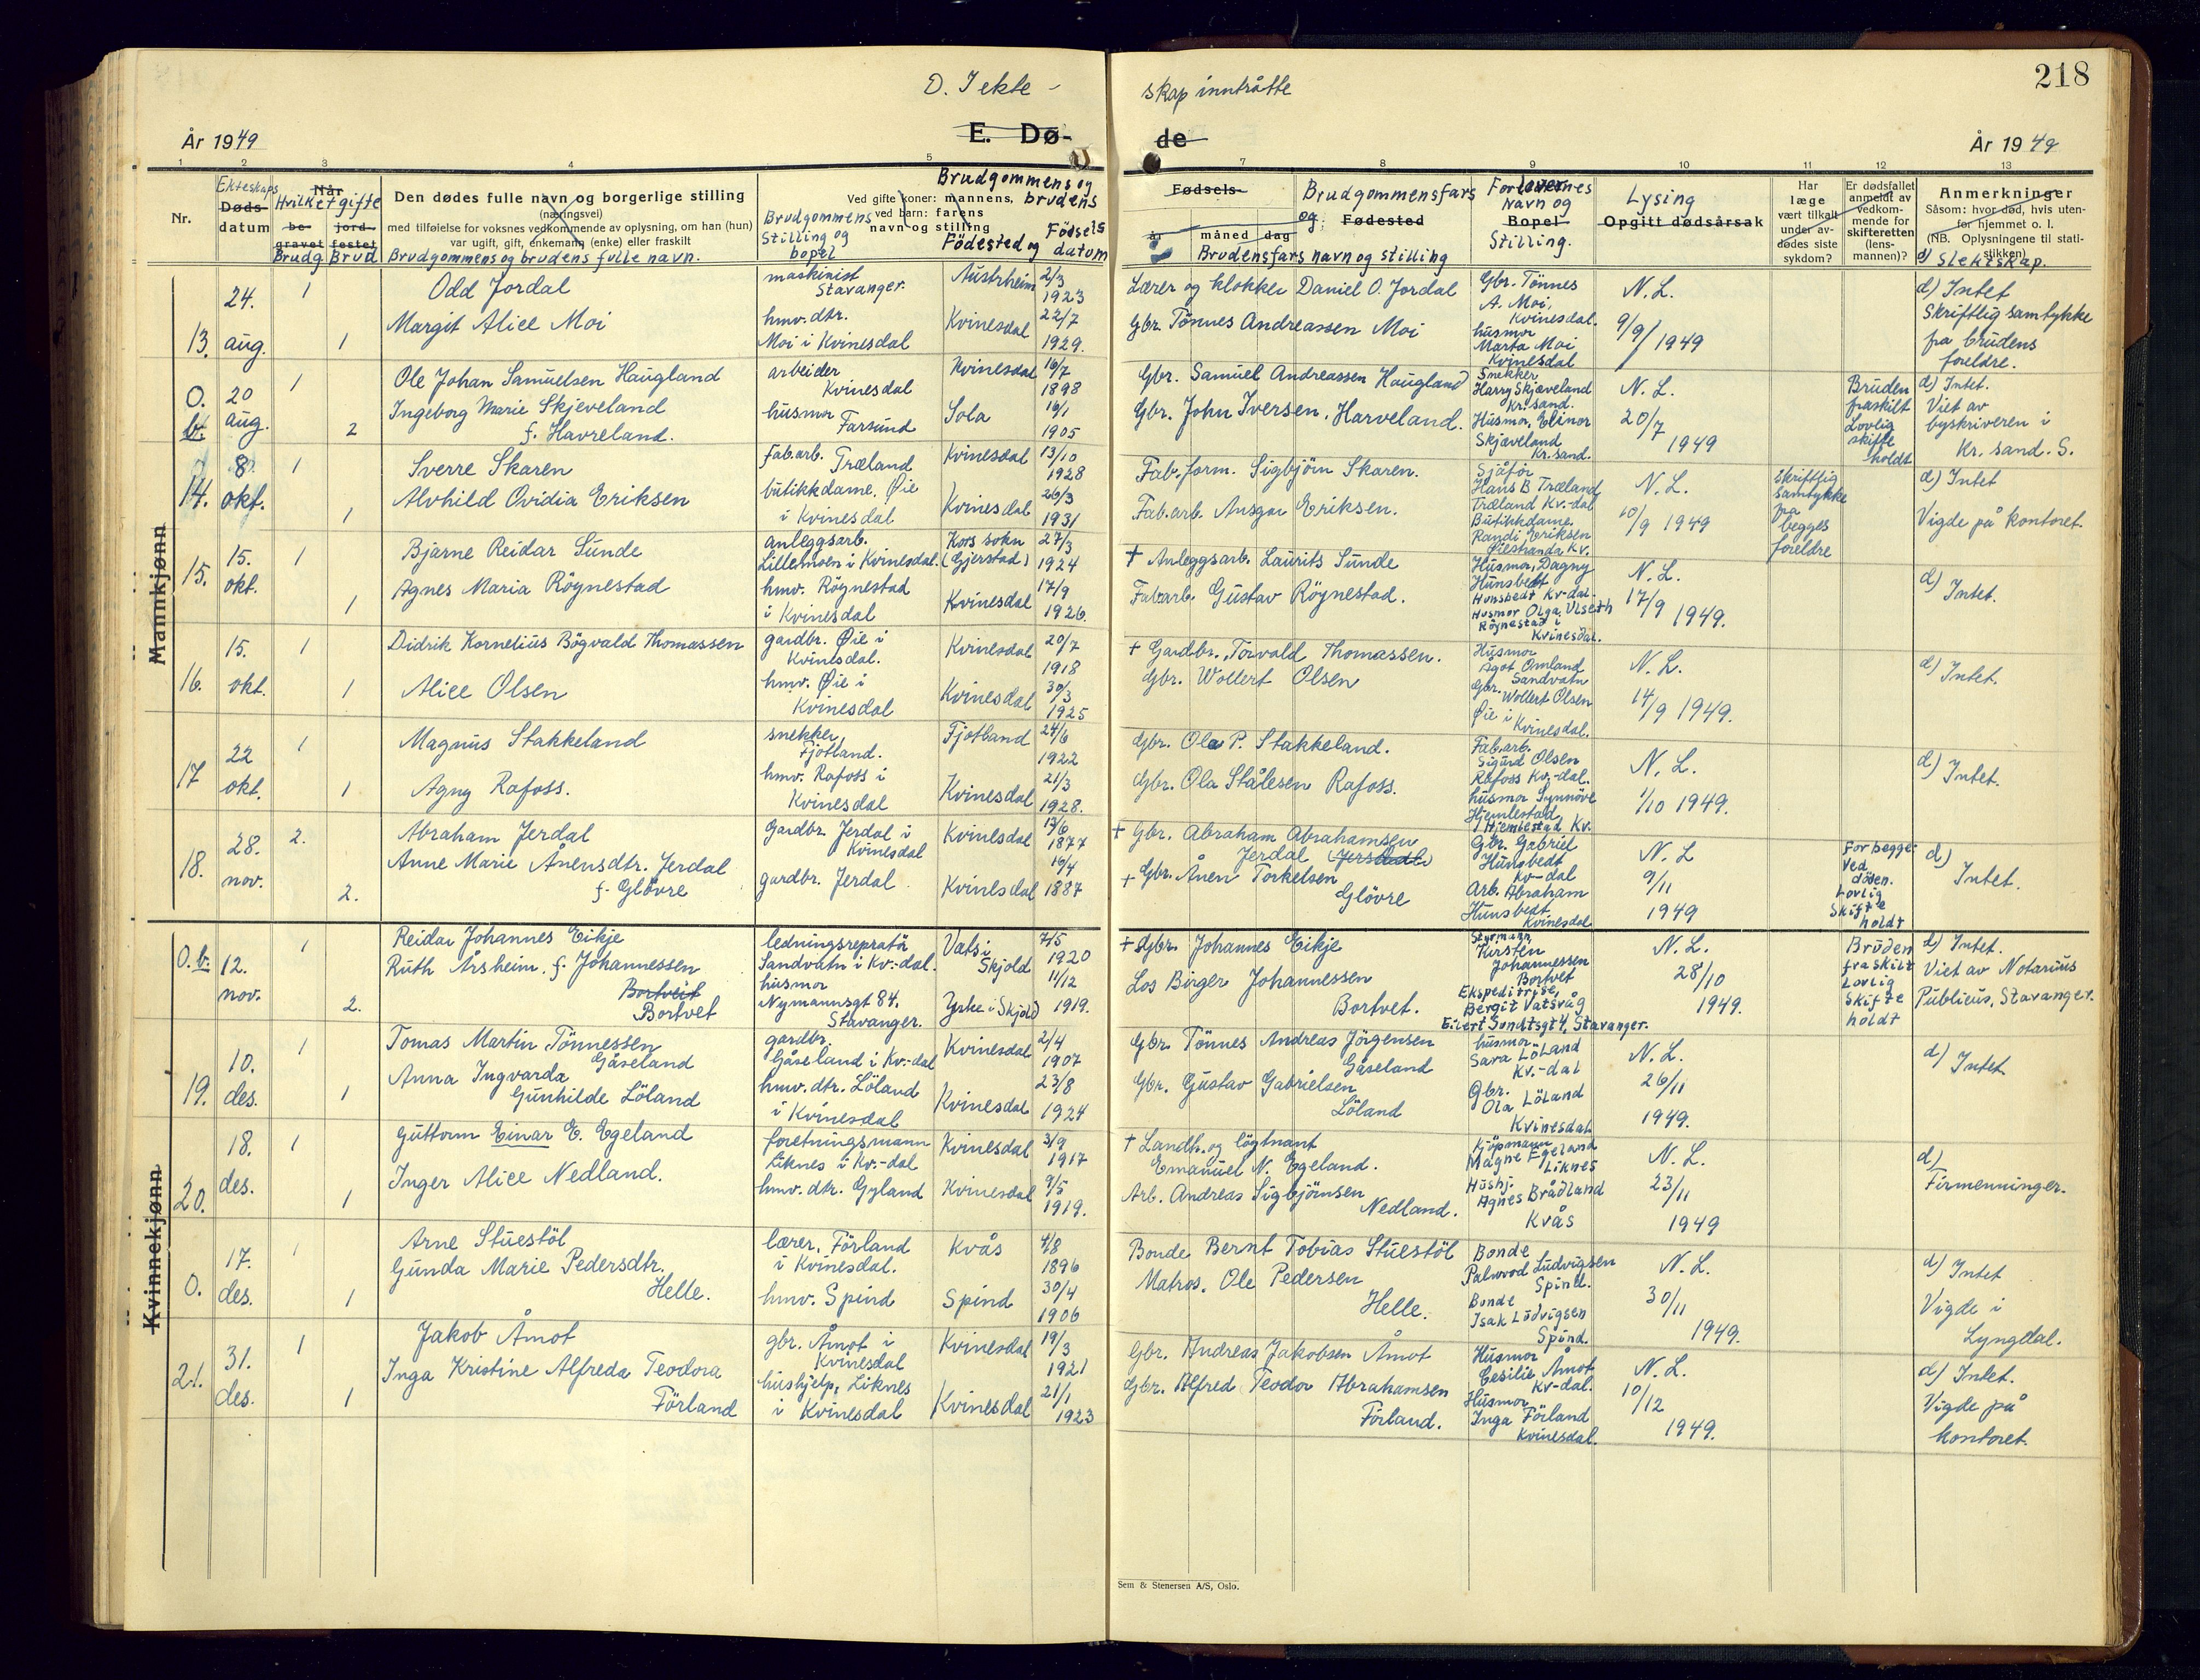 D. I ekte-
skap inntrådte
218
År 1949
E. Dø-
de
År 1949
1 2 3 4 5 7 8 9 10 11 12 13
Nr.
Ekteskaps
Døds-
datum
Når
Hvilket gifte
be-
gravet
jord-
festet
Brudg Brud
Den dødes fulle navn og borgerlige stilling
(næringsvei)
med tilføielse for voksnes vedkommende av oplysning, om han (hun)
var ugift, gift, enkemann (enke) eller fraskilt
Brudgommens og brudens fulle navn.
Ved gifte koner: mannens,
ved barn: farens
navn og stilling
Brudgommens
Stilling og
bopel
Brudgommens og
brudens
Fødested og
Fødsels
datum
Fødsels-
år
måned dag
Brudgommensfars
og
Fødested
Brudensfars navn og stilling
Forlovernes
Navn og
Bopel
Stilling.
Lysing
Opgitt dødsårsak
Har
læge
vært tilkalt
under av-
dødes siste
sykdom?
Er dødsfallet
anmeldt av
vedkom-
mende for
skifteretten
(lens-
mannen)?
Anmerkninger
Såsom: hvor død, hvis uten-
for hjemmet o. l.
(NB. Oplysningene til stati-
stikken)
d) Slektskap.
Mannkjønn
Kvinnekjønn
13.
24.
aug.
1
1
Odd Jordal
Margit Alice Moi
maskinist
Stavanger.
hmv. dtr.
Moi i Kvinesdal
Austrheim
Kvinesdal
2/3
1923
22/7
1929.
Lærer og klokker Daniel O. Jordal
Gbr. Tønnes Andreassen Moi
Gbr. Tönnes
A. Moi,
Kvinesdal.
husmor
Marta Moi
Kvinesdal
N.L.
9/9/1949
d) Intet
Skriftlig samtykke
fra brudens
foreldre.
O.
b.
20
aug.
1
2
Ole Johan Samuelsen Haugland
Ingeborg Marie Skjeveland
f. Havreland.
arbeider
Kvinesdal
husmor
Farsund
Kvinesdal
Sola
16/7
1898
16/1
1905
Gbr. Samuel Andreassen Haugland
Gbr. John Iversen, Harveland.
Snekker
Harry Skjæveland
Kr.sand.
Husmor, Elinor
Skjæveland
Kr.sand.
N.L.
20/7
1949
Bruden
fraskilt
Lovlig
skifte
holdt
d) Intet.
Viet av
byskriveren i
Kr. sand. S.
14.
8.
okt.
1
1
Sverre Skaren
Alvhild Ovidia Eriksen
fab.arb. Træland
butikkdame, Øie
i Kvinesdal
Kvinesdal
Kvinesdal
13/10
1928
26/3
1931
Fab.form. Sigbjörn Skaren.
Fab.arb. Ansgar Eriksen.
Sjåför
Hans B Træland
Træland Kv-dal
Butikkdame
Randi Eriksen
Øiestranda Kv.
N.L.
10/9 1949
Skriftlig
samtykke
fra
begges
foreldre
d) Intet
Vigde på kontoret.
15.
15.
okt.
1
1
Bjarne Reidar Sunde
Agnes Maria Röynestad
anleggsarb.
Lillemoen i Kvinesdal.
hmv. Röynestad
i Kvinesdal
Kors sokn
(Gjerstad)
Kvinesdal
27/3
1924
17/9
1926.
+ Anleggsarb. Laurits Sunde
Fab.arb. Gustav Röynestad.
Husmor, Dagny
Hunsbedt
Hunsbedt Kv-dal.
Husmor Olga, Ulseth
Röynestad i
Kvinesdal.
N.L.
17/9 1949.
d) Intet.
16.
15.
okt.
1
1
Didrik Kornelius Bögvald Thomassen
Alice Olsen
gardbr. Øie i
Kvinesdal.
hmv. Øie i
Kvinesdal
Kvinesdal
Kvinesdal
20/7
1918
30/3
1925
+ Gardbr., Torvald Thomassen.
Gbr. Wollert Olsen
Husmor
Ågot Omland
Sandvatn
Gbr. Wollert Olsen
Øie i
Kvinesdal.
N.L.
14/9 1949.
d) Intet.
17
22
okt.
1
1
Magnus Stakkeland
Agny Rafoss.
snekker,
Fjotland.
hmv. Rafoss i
Kvinesdal
Fjotland
Kvinesdal
24/6
1922
21/3
1928.
Gbr. Ola P. Stakkeland.
Gbr. Ola Stålesen Rafoss.
Fab.arb.
Sigurd Olsen
Rafoss Kv.-dal.
husmor Synnöve
Hjemlestad,
Hjemlestad Kv.
N.L.
1/10 1949.
d) Intet.
18.
28.
nov.
2.
2.
Abraham Jerdal
Anne Marie Ånensdtr. Jerdal
f. Glövre
Gardbr. Jerdal i
Kvinesdal
gardbr. Jerdal
Kvinesdal
Kvinesdal
13/6
1877
16/4
1887
+ Gbr. Abraham Abrahamsen
Jerdal
+ Gbr. Ånen Torkelsen
Glövre
Gbr. Gabriel
Hunsbedt
Kv-dal
Arb. Abraham
Hunsbedt
Kvinesdal
N.L
9/11
1949
For begge:
Ved
döden.
Lovlig
Skifte
holdt
d)
Intet.
O.b.
12.
nov.
1
2.
Reidar Johannes Eikje
Ruth Årsheim, f. Johannessen
Bortveit
Bortvet
ledningsrepratör
Sandvatn i Kv.-dal.
husmor
Nymannsgt 84.
Stavanger.
Vats i
Skjold
Yrke i Skjold
7/5
1920
11/12
1919.
+ Gbr. Johannes Eikje
Los Birger Johannessen
Bortvet.
Styrmann,
Kirsten
Johannessen
Bortvet
Ekspeditrise,
Bergit Vatsvåg
Eilert Sundtsgt 4, Stavanger.
N.L.
28/10
1949.
Bruden
fraskilt
Lovlig
Skifte
holdt
d) Intet.
Viet av Notarius
Publicus, Stavanger.
19.
10.
des.
1
1
Tomas Martin Tönnessen
Gåseland
Anna Ingvarda
Gunhilde Löland
gardbr.
Gåseland i Kv.-dal
hmv. dtr. Löland
i Kvinesdal
Kvinesdal
Kvinesdal
2/4
1907
23/8
1924
Gbr. Tönnes Andreas Jörgensen
Gåseland
Gbr. Gustav Gabrielsen
Löland
husmor
Sara Löland
Kv.-dal
Gbr.
Ola Löland
Kvinesdal
N.L.
26/11
1949.
d) Intet
20.
18.
des.
1
1
Guttorm Einar E. Egeland
Inger Alice Nedland.
foretningsmann
Liknes i Kv.-dal
hmv. dtr. Gyland
Kvinesdal
Kvinesdal
3/9
1917
9/5
1919.
+ Landh. og löytnant
Emanuel N. Egeland.
Arb. Andreas Sigbjörnsen
Nedland.
Kjöpmann
Magne Egeland
Liknes
Hushj.
Agnes Brådland
Kvås
N.L.
23/11
1949
d)
Firmenninger.
O.
17.
des.
1
1
Arne Stuestöl
Gunda Marie Pedersdtr.
Helle.
lærer, Förland
i Kvinesdal.
hmv. Spind
Kvås
Spind
4/8
1896
30/4
1906
Bonde Bernt Tobias Stuestöl
Matros. Ole Pedersen
Helle.
Bonde
Ludvigsen
Spind.
Bonde
Isak Lüdvigsen
Spind.
N.L.
30/11
1949.
d) Intet
Vigde i
Lyngdal.
21.
31.
des.
1
1
Jakob Åmot
Inga Kristine Alfreda Teodora
Förland
gbr. Åmot i
Kvinesdal
hushjelp, Liknes
i Kvinesdal
Kvinesdal
Kvinesdal
19/3
1921
21/1
1923
Gbr. Andreas Jakobsen Åmot
Gbr. Alfred Teodor Abrahamsen
Förland.
Husmor
Cesilie Åmot
Kv-dal.
Husmor
Inga Förland
Kvinesdal.
N.L.
10/12
1949.
d) Intet.
Vigde på
kontoret.
Sem & Stenersen A/S, Oslo.